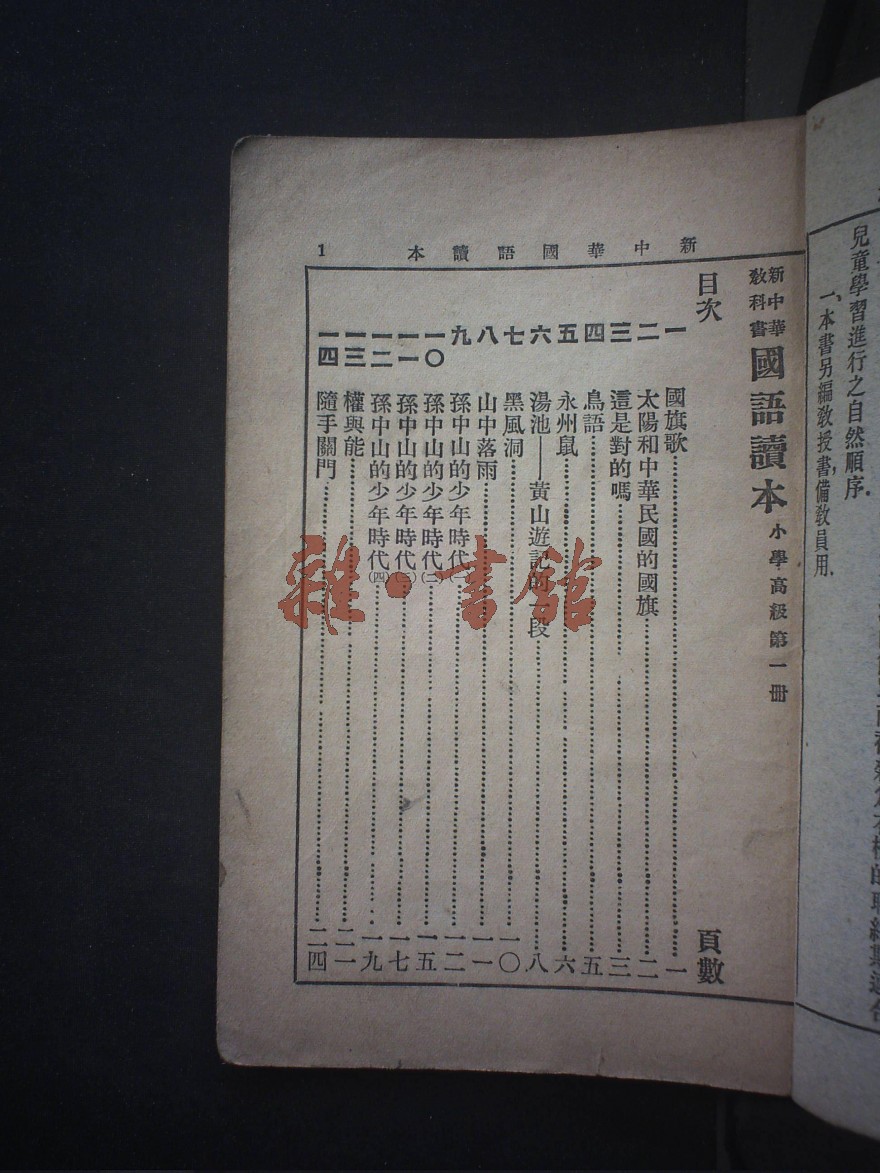 兒童學習進行之自然順序.
一、本書另編敎授書,備敎員用.
新中華國語讀本
1
新中華
敎科書
國語讀本 小學高級第一冊
目次 頁數
一 國旗歌 一
二 太陽和中華民國的國旗 二
三 這是對的嗎 三
四 鳥語 五
五 永州鼠 六
六 湯池——黃山遊記的一段 八
七 黑風洞 一〇
八 山中落雨 一一
九 孫中山的少年時代(一) 一二
一〇 孫中山的少年時代(二) 一五
一一 孫中山的少年時代(三) 一七
一二 孫中山的少年時代(四) 一九
一三 權與能 二一
一四 隨手關門 二四
雜·書館